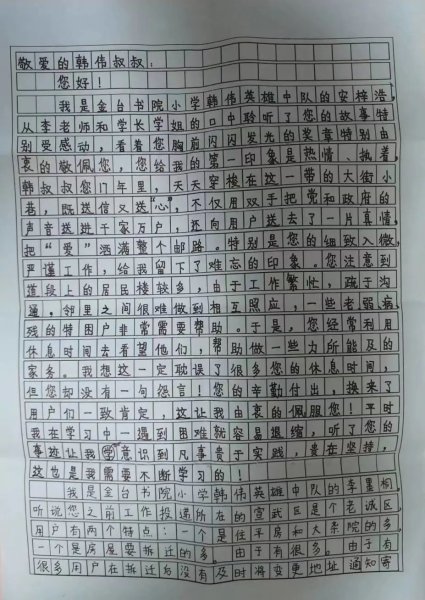 敬爱的韩伟叔叔:
您好!
我是金台书院小学韩伟英雄中队的安梓浩,
从李老师和学长学姐的口中聆听了您的故事特
别受感动,看着您胸前闪闪发光的奖章特别由
衷的敬佩您,您给我的第一印象是热情、执着
韩叔叔您17年里,天天穿梭在这一带的大街小
巷,既送信又送“心”,不仅用双手把党和政府的
声音送进千家万户,还向用户送去了一片真情,
把“爱”洒满整个邮路。特别是您的细致入微,
严谨工作,给我留下了难忘的印象。您注意到
道段上的居民楼较多,由于工作繁忙,疏于沟
通。邻里之间很难做到相互照应,一些老弱病
残的特困户非常需要帮助。于是,您经常利用
休息时间去看望他们,帮助做一些力所能及的
家务。我想这一定耽误了很多您的休息时间,
但您却没有一句怨言!您的辛勤付出,换来了
用户们一致肯定,这让我由衷的佩服您!平时
我在学习中一遇到困难就容易退缩,听了您的
事迹让我意识到凡事贵于实践,贵在坚持,
这也是我需要不断学习的!
我是金台书院小学韩伟英雄中队的李墨桐,
听说您之前工作投递所在的宣武区是个老城区,
用户有两个特点:一个是住平房和大杂院的多,
一个是房屋要拆迁的多。由于有很多。由于有
很多用户在拆迁后没有及时将变更地址通知寄